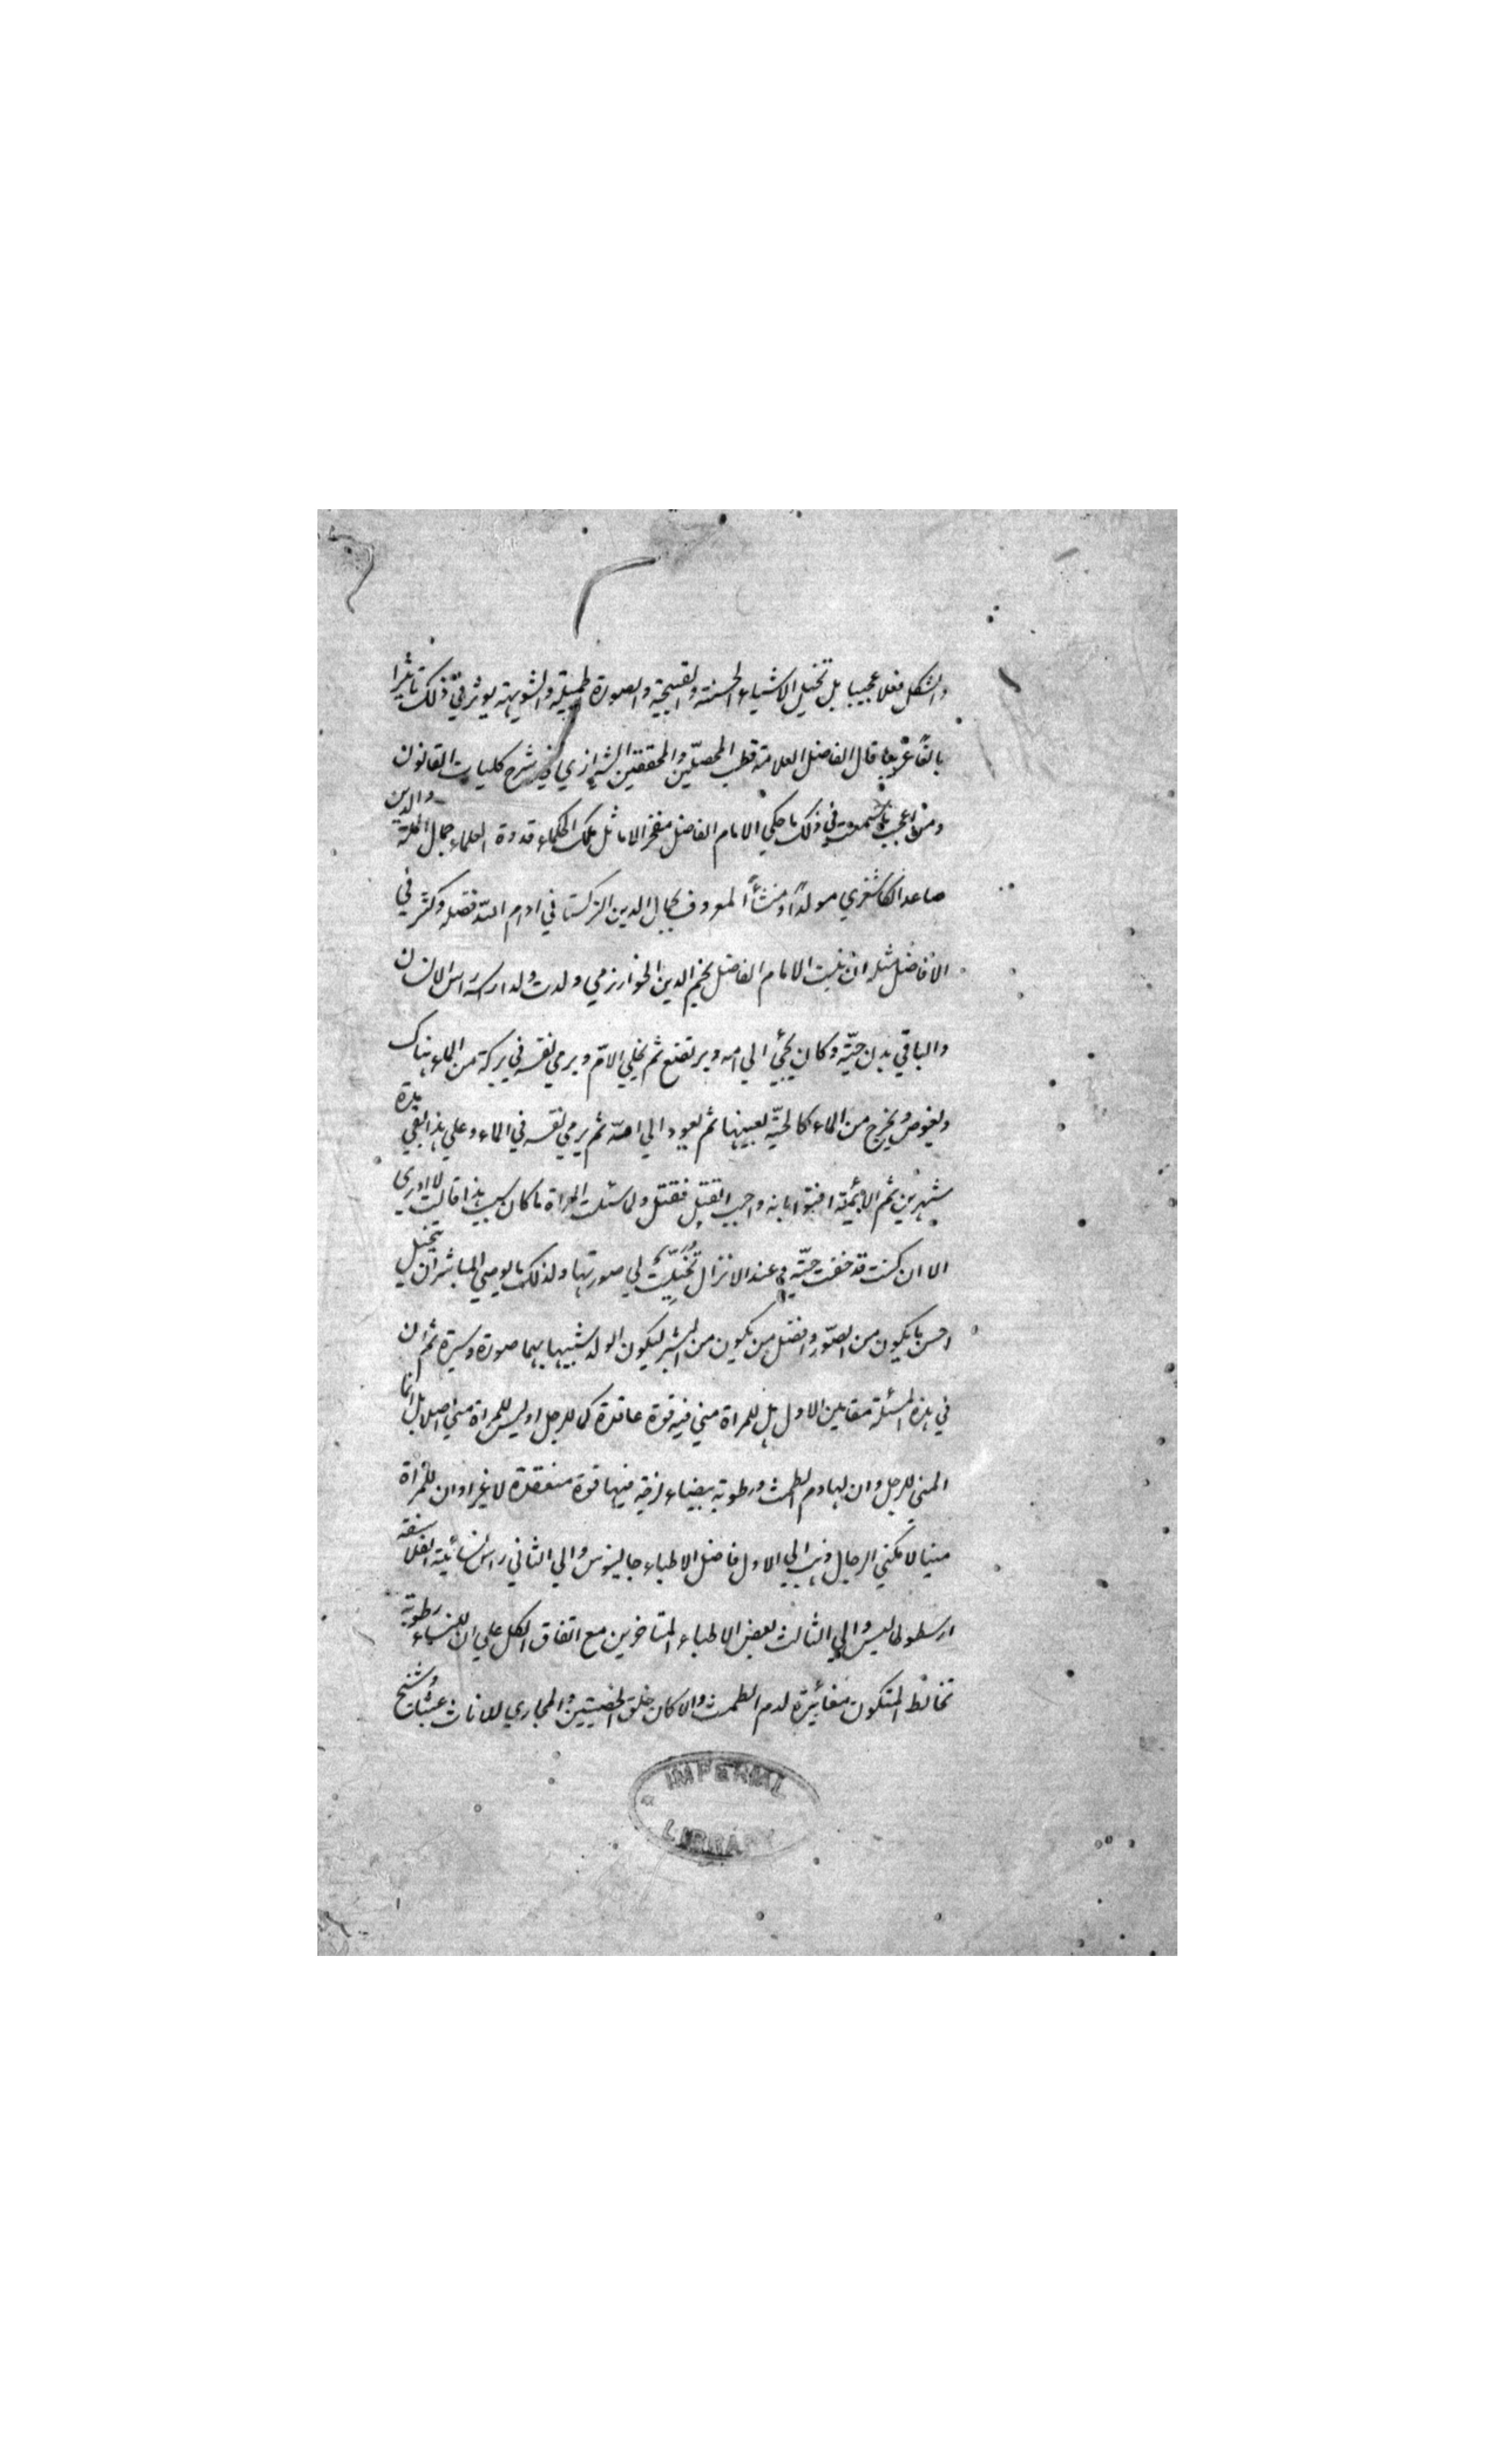 والشكل فعلا عجيبا بل تخيل الاشياء الحسنة والقبيحة والصورة الجميلة والشويهة يوثر في ذلك تاثيرا
بالغا غريبا قال الفاضل العلامة قطب المحصلين والمحققين الشيرازي في شرح كليات القانون
ومن اعجب ما سمعت في ذلك ما حكي الامام الفاضل مفخر الاماثل ملك الحكماء قدوة العلماء جمال الملة والدين
صاعد الكاشغري مولدًا ومنشأً المعروف بجمال الدين التركستاني ادام الله فضله وكثر في
الافاضل مثله ان بنت الامام الفاضل نجم الدين الخوارزمي ولدت ولدا رسه راس الانسان
والباقي بدن حيّة وكان يجيئ الي امه ويرتضع ثم يخلي الام ويرمي نفسه في بركة من الماء هناك
ويغوص ويخرج من الماء كالحيّة بعينها ثم يعود الي امّه ثم يرمي نفسه في الماء وعلي هذا بقي مدة
شهرين ثم الأئمة افتوا بانه واجب القتل فقتل ولما سئلت المراة ما كان سبب هذا قالت لا ادري
الا ان كنت قد خفت حيّة وعند الانزال تخيّلت لي صورتها ولذلك ما يوصي المباشر ان يتخيل
احسن ما يكون من الصّور وافضل من يكون من البشر ليكون الولد شبيها بهما صورة وسيرة ثم ان
في هذه المسئلة مقامين الاول هل للمراة مني فيه قوة عاقدة كما للرجل او ليس للمراة مني اصلا بل انما
المني للرجل وان لها دم الطمث ورطوبة بيضاء لزجة فيها قوة منعقدة لا غير او ان للمراة
منيا لا كمني الرجال ذهب الي الاول فاضل الاطباء جالينوس والي الثاني راس المشائية الفلاسفة
ارسطوطاليس والي الثالث بعض الاطباء المتاخرين مع اتفاق الكل علي ان للنساء رطوبة
تخالط المتكون مغائرة لدم الطمث والا كان خلق الخصيتين والمجاري للاناث عبثا
IMPERIAL
LIBRARY